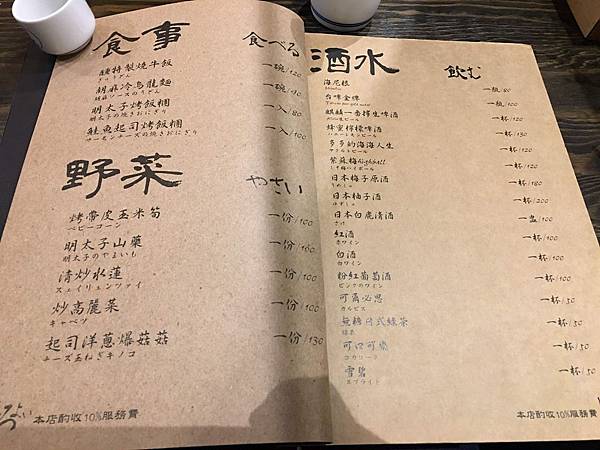 食事 食べる
醺特製燒牛飯 一碗/120
ぎゅうどん
胡麻冷烏龍麵
胡麻ソースのうどん
明太子烤飯糰 一入/80
明太子の焼きおにぎり
鮭魚起司烤飯糰 一入/100
サーモンチーズの焼きおにぎり
野菜 やさい
烤帶皮玉米筍 一份/100
ベビーコーン
明太子山藥 一份/100
明太子のやまいも
清炒水蓮 一份/100
スェイリェンツァイ
炒高麗菜 一份/100
キャベツ
起司洋蔥爆菇菇 一份/130
チーズ玉ねぎキノコ
本店酌收10%服務費
酒水 飲む
海尼根 一瓶/80
台啤金牌 一瓶/100
麒麟一番榨生啤酒 一杯/120
蜂蜜檸檬啤酒 一杯/130
ハニーレモンビール
多多的海海人生 一杯/120
ヤクルトビール
紫蘇梅Highball 一杯/120
日本梅子原酒 一杯/180
うめしゅ
日本柚子酒 一杯/200
ゆずしゅ
日本白鹿清酒 一盅/100
さけ
紅酒 一杯/100
赤ワイン
白酒 一杯/100
白ワイン
粉紅葡萄酒 一杯/100
ピンクのワイン
可爾必思 一杯/50
カルピス
無糖日式綠茶 一杯/50
緑茶
可口可樂 一杯/50
コカコーラ
雪碧 一杯/50
スプライト
本店酌收10%服務費